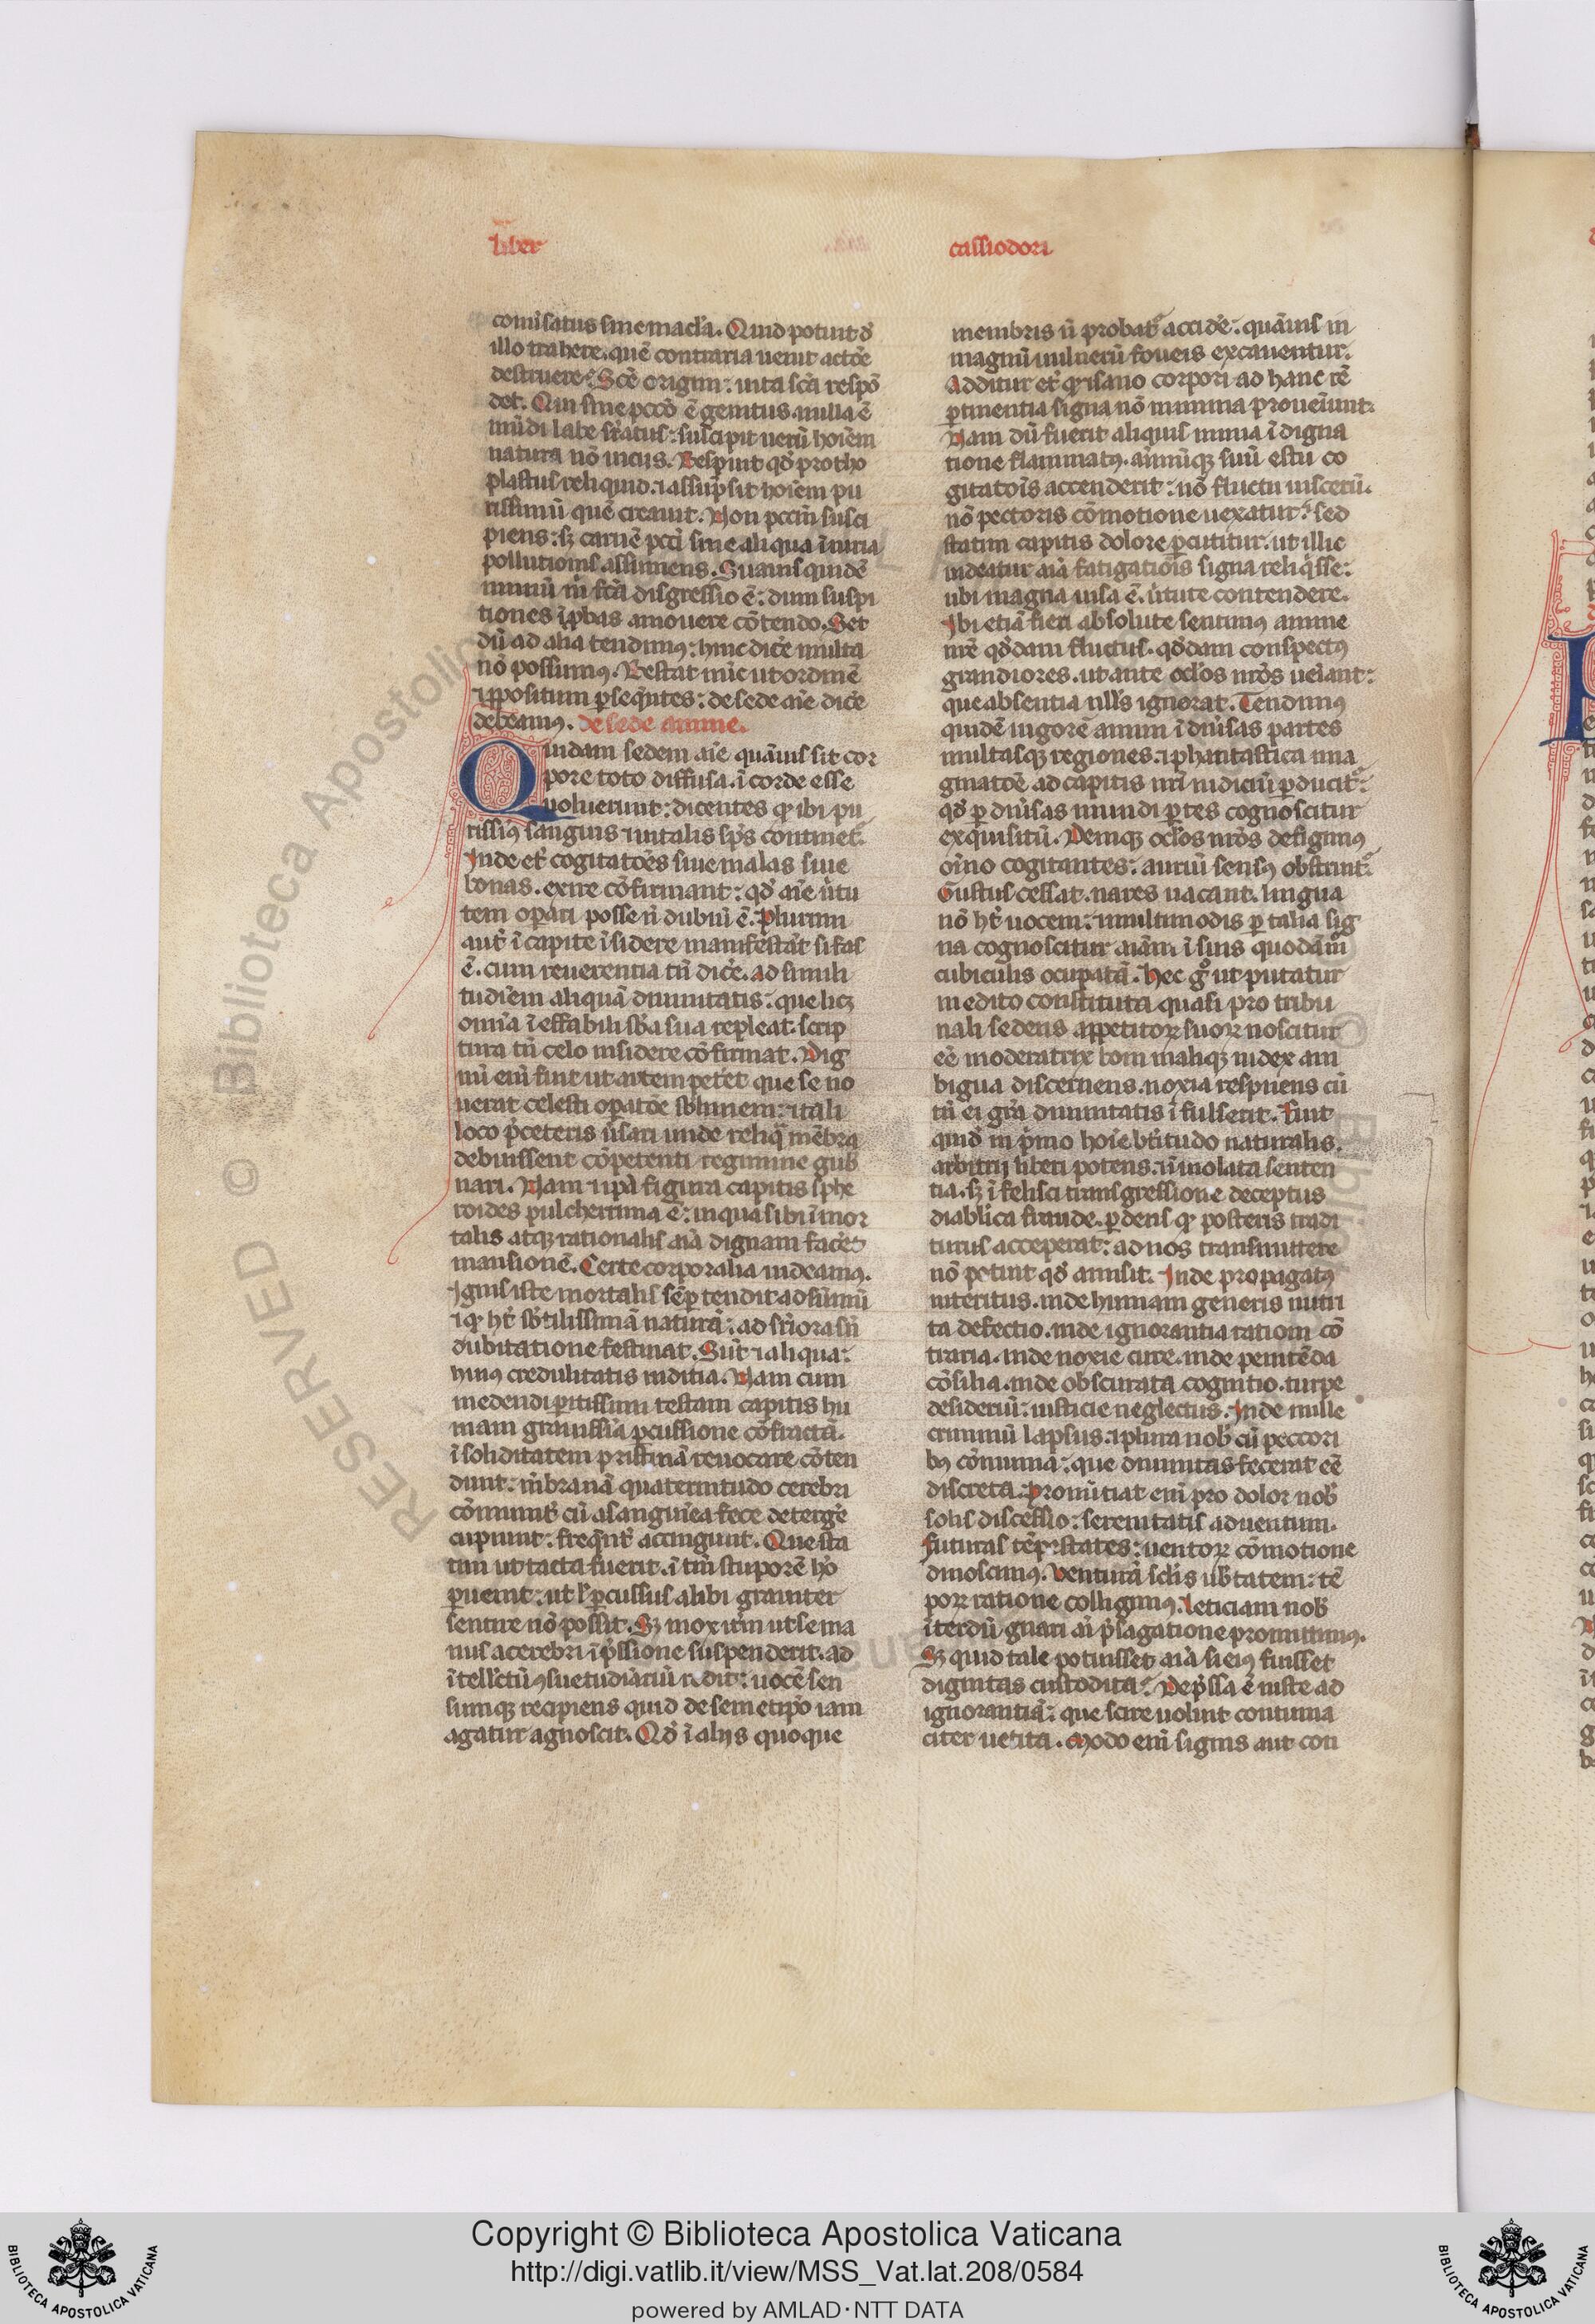 liber
cassiodori
comĩsatus sine macl̃a. Quid potuit d̾
illo trahere. quẽ contraria uenit actõe
destruere? Scẽ origini: uita scã respõ
det. Qui sine pccõ ẽ genitus. nulla ẽ
mũdi labe sr̃atus: suscipit uerũ hoĩem
natura nõ uicijs. Respuit qd̾ protho
plastus reliquid. ⁊ assũpsit hoĩem pu
rissimũ quẽ creauit. Non pccm̃ susci
piens: sꝫ carnẽ pccĩ sine aliqua ĩiuria
pollutionis assumens. Suauis quidẽ
nimiũ m̃ fcã disgressio ẽ: dum suspi
tiones ĩꝓbas amouere cõtendo. Set
dũ ad alia tendimꝰ: hinc dicẽ multa
nõ possumꝰ. Restat nũc ut ordinẽ
ꝓpositum ꝑseq̃ntes: de sede aĩe dicẽ
debeamꝰ. de sede anime.
Quidam sedem aĩe quãuis sit cor
pore toto diffusa. ĩ corde esse
uoluerunt: dicentes ꝙ ibi pu
rissiꝰ sanguis ⁊ uitalis sp̃s continet᷑.
Inde et᷑ cogitatões siue malas siue
bonas. exire cõfirmant: qd̾ aĩe uĩtu
tem oꝑari posse ñ dubiũ ẽ. Plurimi
aut᷑ ĩ capite ĩsidere manifestãt si fas
ẽ. cum reuerentia tñ dicẽ. ad simili
tudiẽm aliquã diuinitatis: que licꝫ
omĩa ĩeffabili sb̃a sua repleat. scrip
tura tñ celo insidere cõfirmat. Dig
nũ eni fuit ut artem petet que se no
uerat celesti oꝑatõe sb̾limem: ⁊ tali
loco p̃ ceteris ũsari unde reliq̃ mẽbra
debuissent cõpetenti regimine gub̾
nari. Nam ⁊ ip̃a figura capitis sphe
roides pulcherrima ẽ: in qua sibi ĩmor
talis atqꝫ rationalis aĩa dignam facẽt
mansionẽ. Certe corporalia uideamꝰ.
Ignis iste mortalis sẽꝑ tendit ad sũmũ
⁊ ꝙ hr̃ sb̾tilissimã naturã: ad sr̃iora sñ
dubitatione festinat. Sũt ⁊ aliqua:
huiꝰ credulitatis inditia. Nam cum
medendi ꝑitissimi testam capitis hu
mani grauissĩa ꝑcussione cõfractã.
ĩ soliditatem pristinã reuocare cõten
dunt: mẽbranã qua termitudo cerebri
cõmunit᷑ cũ a sanguiea fece detergẽ
cupiunt: freq̃nt᷑ attingunt. Que sta
tim ut tacta fuerit. ĩ tm̃ stuporẽ hõ
ꝑuenit: ut si ꝑcussus alibi grauiter
sentire nõ possit. Sꝫ mox ut᷑m ut se ma
nus a cerebri ĩp̃ssione suspenderit. ad
ĩtell'ctũ ꝯsuetudiãriũ redit: uocẽ sen
sumqꝫ recipiens quid de semetip̃o iam
agatur agnoscit. Qd̾ ĩ alijs quoque
membris ñ probat᷑ accidẽ: quãuis in
magnũ uulnerũ foueis excauentur.
Additur et᷑ ꝙ isano corpori ad hanc rẽ
ꝑtinentia signa nõ minima proueiunt:
Nam dũ fuerit aliquis nimia ĩdigna
tione flammatꝰ. animũqꝫ suũ estu co
gitatois accenderit: nõ fluctu uiscerũ.
nõ pectoris cõmotione uexatur: sed
statim capitis dolore ꝑcutitur. ut illic
uideatur aĩa fatigatiois signa reliq̃sse:
ubi magna uisa ẽ. uĩtute contendere.
Ibi etiã fieri absolute sentimꝰ anime
nr̃e qd̾dam fluctus. qd̾dam conspectꝰ
grandiores. ut ante ocl̃os nr̃os ueiant:
que absentia null's ignorat. Tendimus
quidẽ uigorẽ animi ĩ diũsas partes
multasqꝫ regiones. ⁊ phantastica ima
ginatõe ad capitis nr̃i iudiciũ ꝑducit᷑:
qd̾ ꝑ diũsas mundi ꝑtes cognoscitur
exq̃usitũ. Deniqꝫ ocl̃os nr̃os defigimꝰ
oĩno cogitantes: auriũ sensꝰ obstruit᷑.
Gustus cessat. nares uacant. lingua
nõ hr̃ uocem: ⁊ multimodis ꝑ talia sig
na cognoscitur aĩam ĩ suis quodãm̃
cubiculis ocupatã. Hec g̊ ut putatur
in edito constituta quasi pro tribu
nali sedens appetitoꝝ suoꝝ noscitur
eẽ moderatrix boni maliqꝫ iudex am
bigua discernens. noxia respuens cũ
tñ ei gr̃a diuinitatis ĩfulserit. Fuit
quid̾ in p̃mo hoĩe bt̃itudo naturalis.
arbitrij liberi potens. ⁊ ĩuiolata senten
tia. sꝫ ĩ felisci transgressione deceptus
diablica fraude. ꝑdens ꝙ posteris tradi
turus acceperat: ad nos transmittere
nõ potuit qd̾ amisit. Inde propagatꝰ
interitus. inde humani generis inuiti
ta defectio. inde ignorantia rationi cõ
traria. inde noxie cure. inde penitẽda
cõsilia. inde obscurata cognitio. turpe
desideriũ: iusticie neglectus. Inde mille
criminũ lapsus. ⁊ plura nob̾ cũ peccori
bꝰ cõmunia: que diuinitas fecerat eẽ
discreta. Pronũtiat eni pro dolor nob̾
solis discessio: serenitatis aduentum.
Futuras tẽpestates: uentoꝝ cõmotione
dinoscimꝰ. Venturã sol'is ub̾tatem: tẽ
poꝝ ratione colligimꝰ. leticiam nob̾
ĩterdũ gnari aĩ p̃sagatione promittimꝰ.
Sꝫ quid tale potuisset aĩa si eiꝰ fuisset
dignitas custodita? Dep̃ssa ẽ iuste ad
ignorantiã: que scire uoluit contuma
citer uetita. Modo eni signis aut con
Copyright © Biblioteca Apostolica Vaticana
http://digi.vatlib.it/view/MSS_Vat.lat.208/0584
powered by AMLAD·NTT DATA
BIBLIOTECA APOSTOLICA VATICANA
BIBLIOTECA APOSTOLICA VATICANA